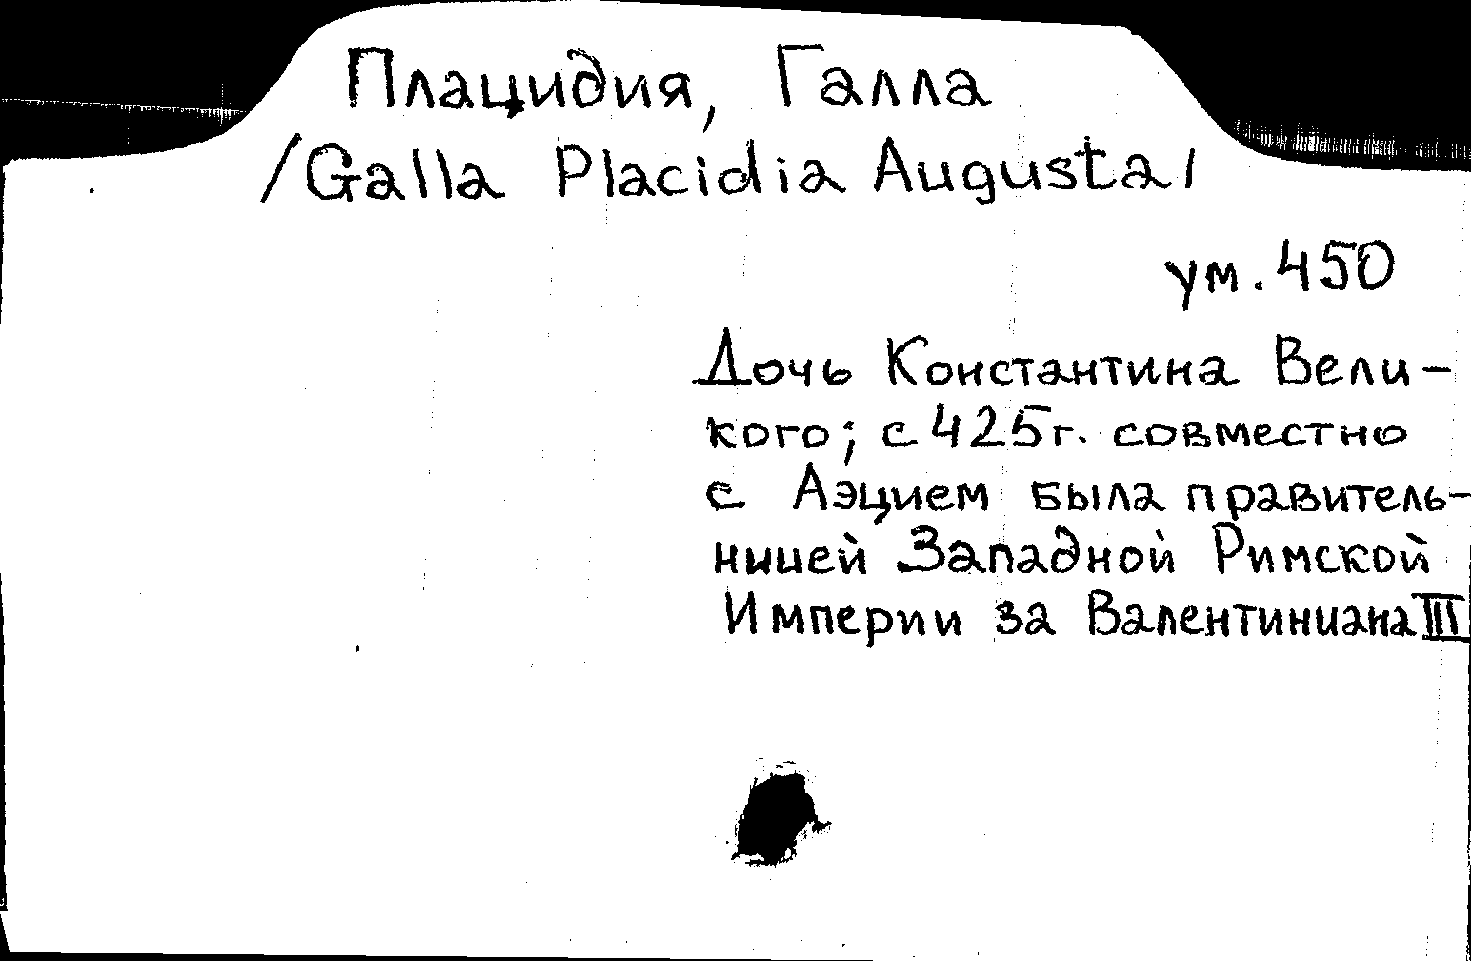 Плацидия, Галла
/Galla Placidia Augusta/
ум. 450
Дочь Константина Вели-
кого; с 425 г. совместно
с Аэцием была правитель-
ницей Западной Римской
Империи за Валентиниана III